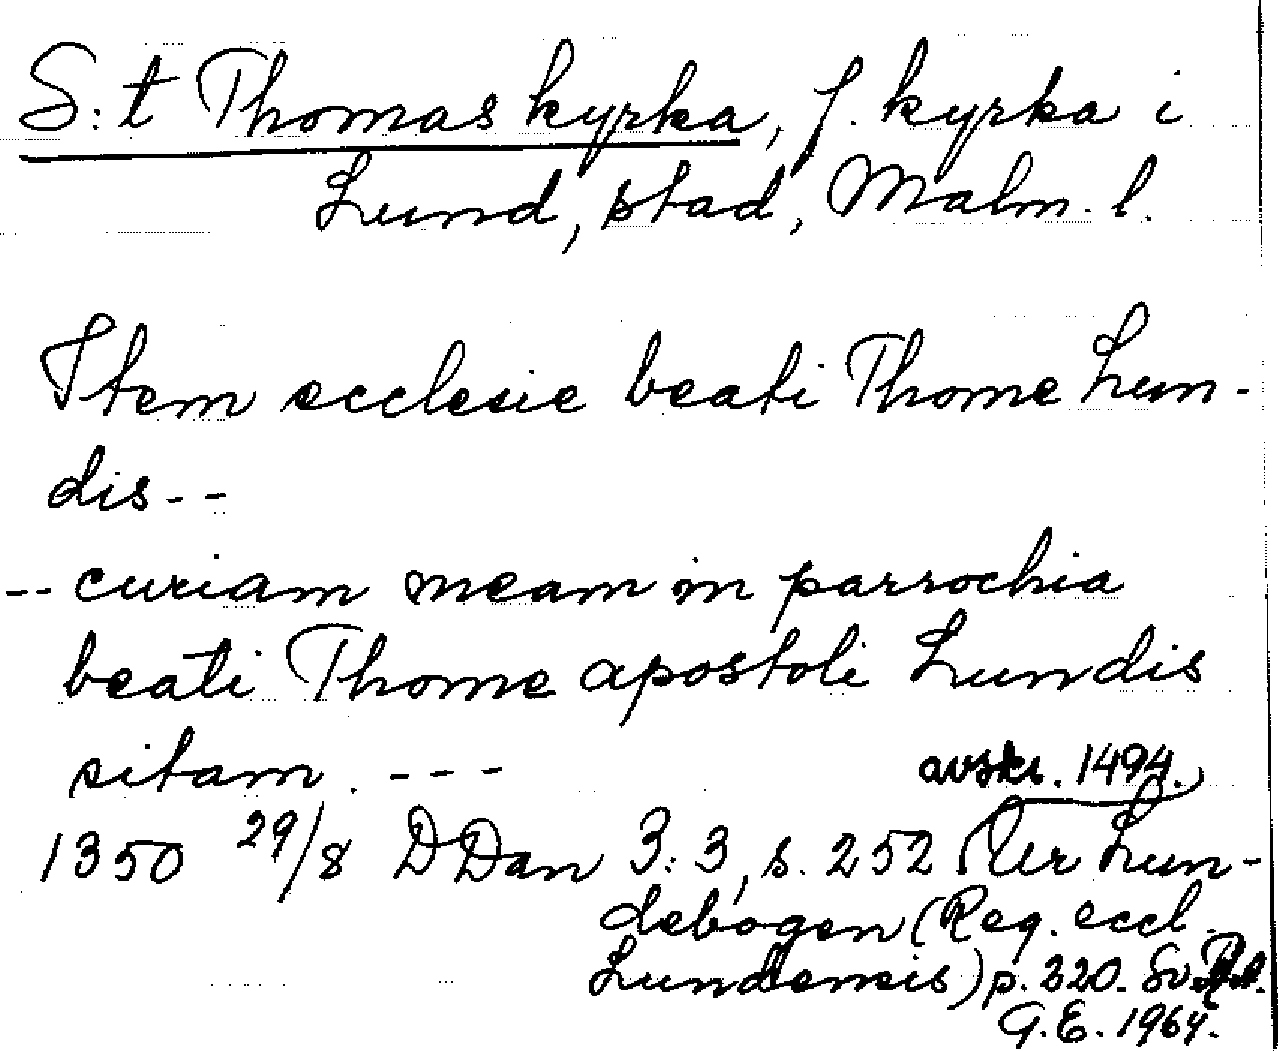 S:t Thomas kyrka, f. kyrka i
Lund, stad, Malm. l.
Item ecclesie beati Thome Lun-
dis --
-- curiam meam in parrochia
beati Thome apostoli Lundis
sitam. ---
avskr. 1494.
1350 29/8 DDan 3:3, s. 252 (Ur Lun-
debogen (Reg. eccl.
Lundensis) p. 320. Sv. RA.
G.E. 1964.